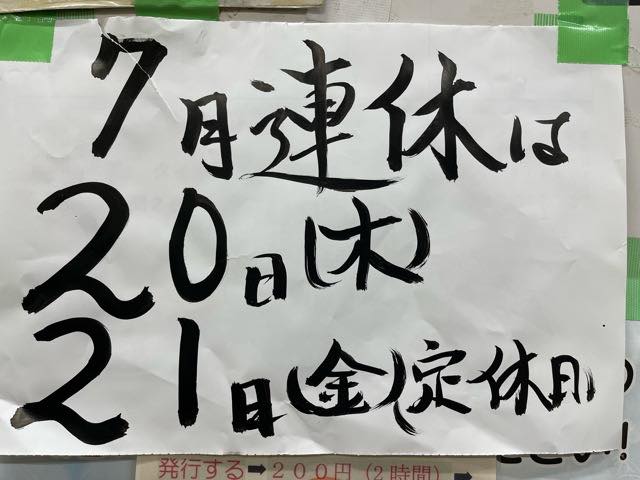 7月連休は
20日(木)
21日(金)定休日
発行する➡200円(2時間)➡
さい!